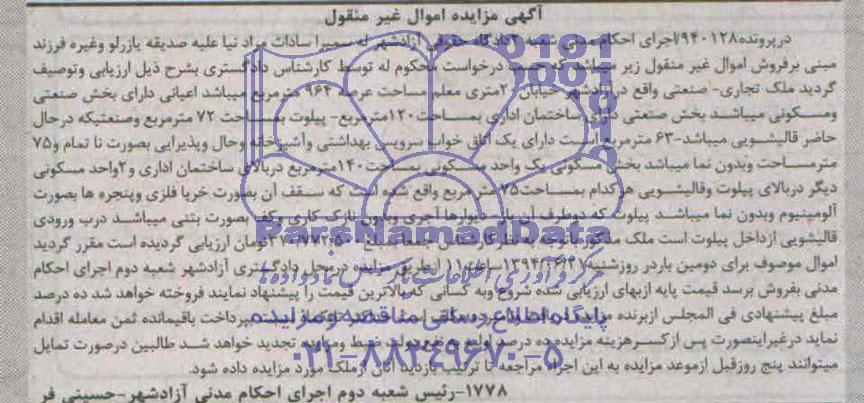 آگهی مزایده اموال غیر منقول
درپرونده ۹۴۰۱۲۸/اجرای احکام مدنی شعبه ۲دادگاه حقوقی آزادشهر له سمیرا سادات مراد نیا علیه صدیقه یازرلو وغیره فرزند
مبنی برفروش اموال غیر منقول زیر میباشد که حسب درخواست محکوم له توسط کارشناس دادگستری بشرح ذیل ارزیابی وتوصیف
گردید ملک تجاری- صنعتی واقع درآزادشهر خیابان ۲۰متری معلم مساحت عرصه ۹۶۴ مترمربع میباشد اعیانی دارای بخش صنعتی
ومسکونی میباشد بخش صنعتی دارای ساختمان اداری بمساحت ۱۲۰مترمربع- پیلوت بمساحت ۷۲ مترمربع وصنعتیکه درحال
حاضر قالیشویی میباشد-۶۳ مترمربع است دارای یک اتاق خواب سرویس بهداشتی وآشپزخانه وحال وپذیرایی بصورت نا تمام و۷۵
مترمساحت وبدون نما میباشد بخش مسکونی یک واحد مسکونی بمساحت ۱۴۰مترمربع دربالای ساختمان اداری و۲واحد مسکونی
دیگر دربالای پیلوت وقالیشویی هرکدام بمساحت۷۵مترمربع واقع شده است که سقف آن بصورت خرپا فلزی وپنجره ها بصورت
آلومینیوم وبدون نما میباشد پیلوت که دوطرف آن باز- دیوارها آجری وبدون نازک کاری وکف بصورت بتنی میباشد درب ورودی
قالیشویی ازداخل پیلوت است ملک مذکور باتوجه به نظر کارشناس جمعا مبلغ تومان ارزیابی گردیده است مقرر گردید
اموال موصوف برای دومین باردر روزشنبه ساعت۱۱ ازطریق مزایده درمحل دادگستری آزادشهر شعبه دوم اجرای احکام
مدنی بفروش برسد قیمت پایه ازبهای ارزیابی شده شروع وبه کسانی که بالاترین قیمت را پیشنهاد نمایند فروخته خواهد شد ده درصد
مبلغ پیشنهادی فی المجلس ازبرنده مزایده پرداخت باقیمانده ثمن معامله اقدام
نماید درغیراینصورت پس ازکسرهزینه مزایده ده درصد اولیه به نفع دولت ضبط ومزایده تجدید خواهد شد طالبین درصورت تمایل
میتوانند پنج روزقبل ازموعد مزایده به این اجراء مراجعه تا ترتیب بازدید آنان ازملک مورد مزایده داده شود.
۱۷۷۸-رئیس شعبه دوم اجرای احکام مدنی آزادشهر-حسینی فر
ParsNamadData
مرکز فرآوری اطلاعات پارس نماد داده ها
پایگاه اطلاع رسانی مناقصه و مزایده
۰۲۱-۸۸۳۴۹۶۷۰-۵